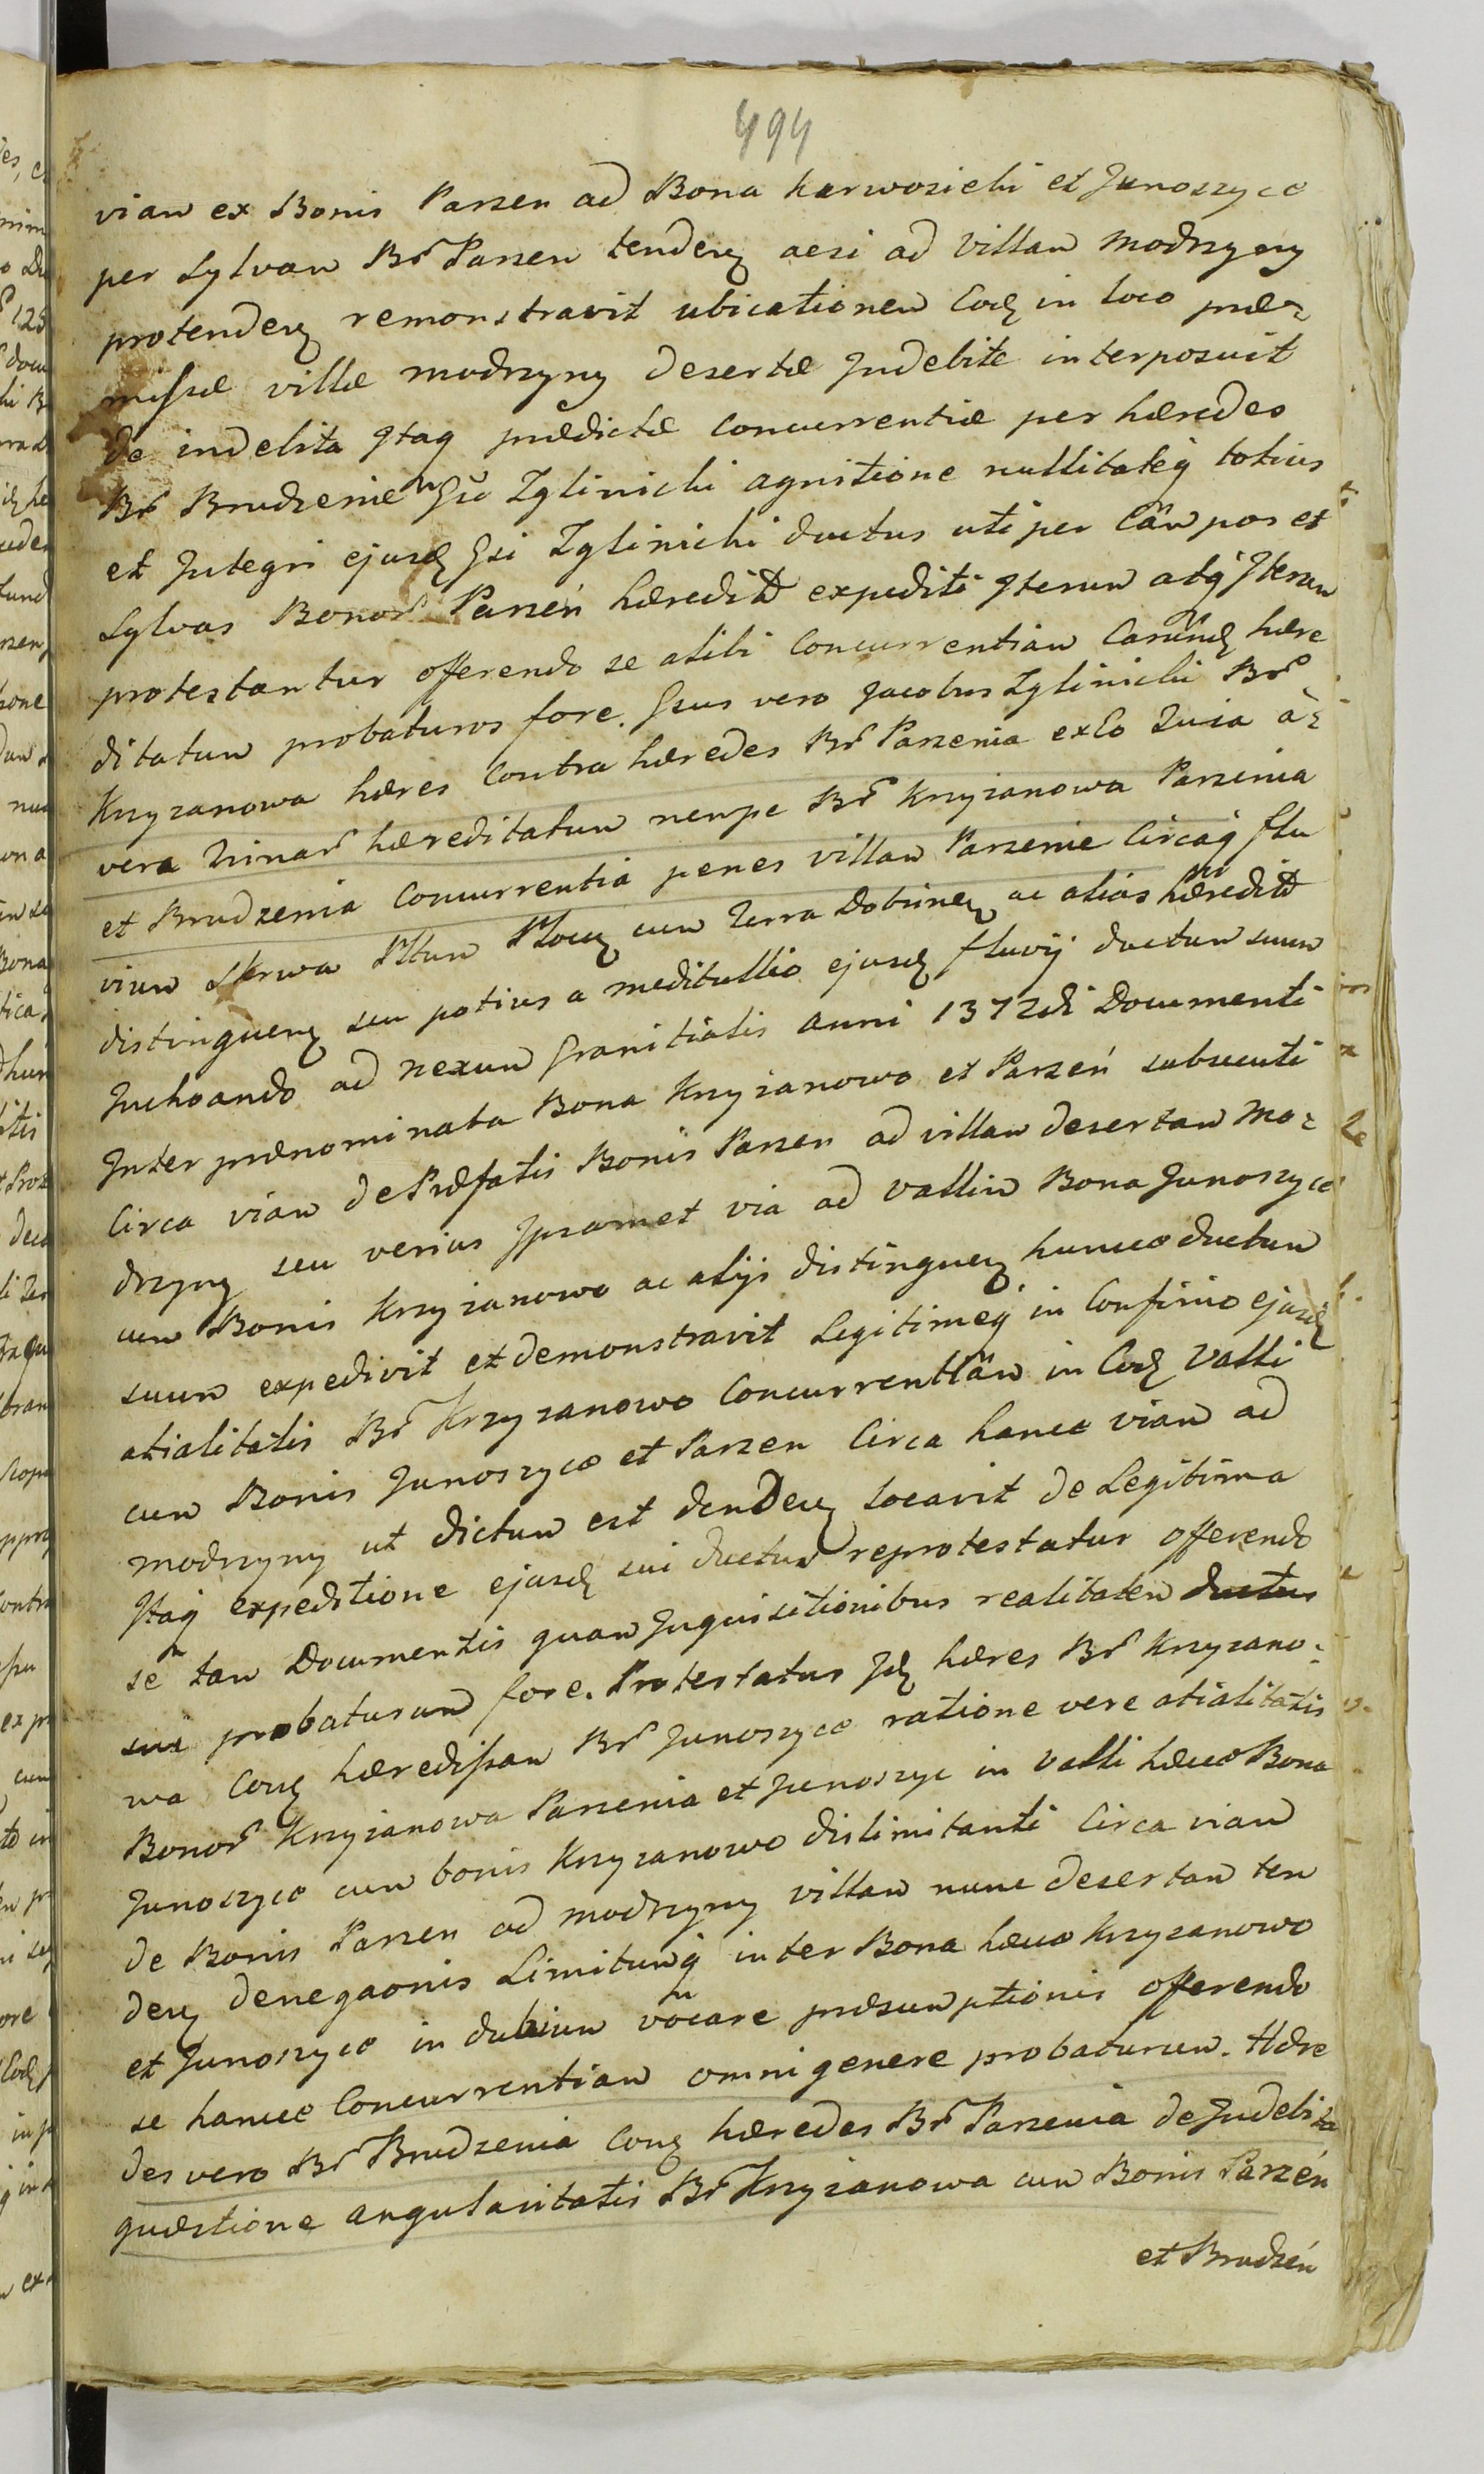 494
viam ex Bonis Parzen ad Bona Karwosieki et Junoszyce
per Sylvam Br̃ Parzen tendeñ acsi ad Villam Modrzyny
protendeñ remonstravit ubicationem Eorũ in loco præ=
missæ villæ Modrzyny desertæ Indebite interposuit
de indebita Itaq prædictæ Concurrentiæ per hæredes
Br̃ Brudzenie Gsu Zglinicki agnitione nullitateq totius
et Integri ejusd Gsi Zglinicki ductus uti per Campos et
Sylvas Bonor̃ Parzeń hæredit̃ expediti Iterum atq Iterum
protestantur offerendo se alibi Concurrentiam Earund hære
ditatum probaturos fore. Gsus vero Jacobus Zglinicki Br̃
Krzyzanowa hæres Contra hæredes Br̃ Parzenia ex Eo Quia à=
vera trinar̃ hæreditatum nempe Br̃ Krzyzanowa Parzenia
et Brudzenia Concurrentia penes villam Parzenie Circaq flu
vium Skrwa Pltum Ploceñ cum Terra Dobrineñ ac alias hæredit̃
distingueñ seu potius a meditullio ejusd fluvij ductum suum
Inchoando ad nexum Granitialis anni 1372di Documenti
Inter prænominata Bona Krzyzanowo et Parzeń subsecuti
Circa viam de Præfatis Bonis Parzen ad villam desertam Mo=
drzyny seu verius Ipsamet via ad vallim Bona Junoszyce
cum Bonis Krzyzanowo ac alijs distingueñ huncce ductum
suum expedivit et demonstravit Legitimeq in Confinio ejusd
atialitatis Br̃ Krzyzanowo Concurrentiam in Eod Valli
cum Bonis Junoszyce et Parzen Circa hancce viam ad
Modrzyny ut dictum est dendeñ locavit de Legitima
Itaq expeditione ejusd sui ductus reprotestatur offerendo
se tam Documentis quam Inquisitionibus realitatem ductus
sui probaturum fore. Protestatur Id hæres Br̃ Krzyzano=
wa Coñ hæredissam Br̃ Junoszyce ratione vere atialitatis
Bonor̃ Krzyzanowa Parzenia et Junoszyc in Valli hæcce Bona
Junoszyce cum bonis Krzyzanowo dislimitanti Circa viam
de Bonis Parzen ad Modrzyny villam nunc desertam ten
deñ denegaonis Limitumq inter Bona hæcce Krzyzanowo
et Junoszyce in dubium vocare præsumptionis offerendo
se hancce Concurrentiam omni genere probaturum. Hære
des vero Br̃ Brudzenia Coñ hæredes Br̃ Parzenia de Indebita
quæstione angularitatis Br̃ Krzyzanowa cum Bonis Parzeń
et Brudzeń